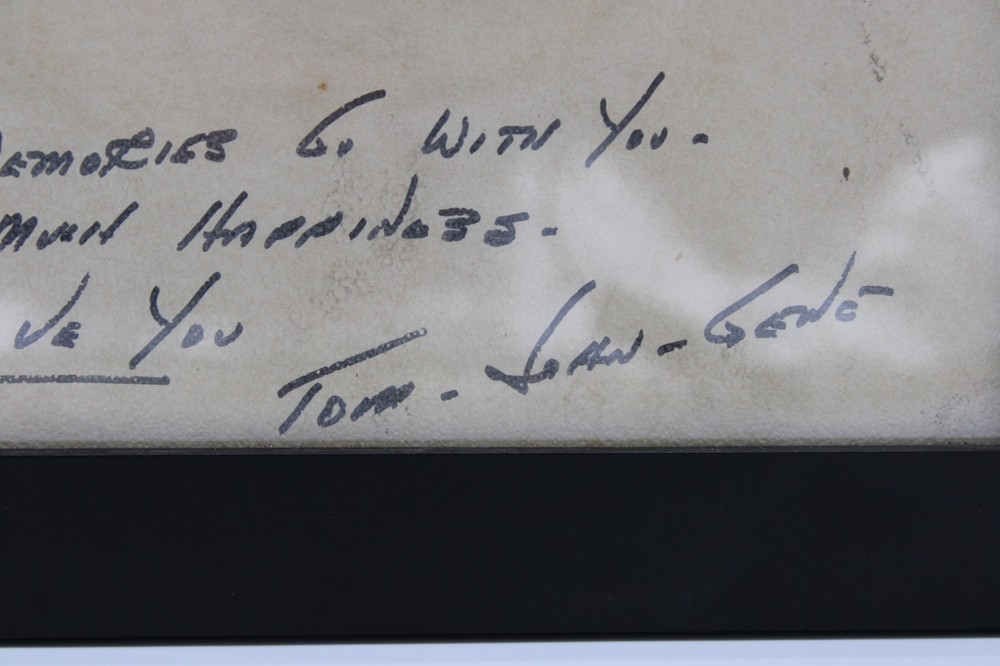 MEMORIES GO WITH YOU.
MUCH HAPPINESS.
VE YOU
TOM - JOAN - GENE